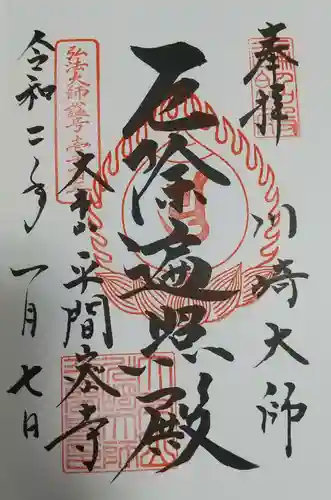 奉拝
川崎大師
厄除遍照殿
大本山平間密寺
弘法大師
令和二年一月七日